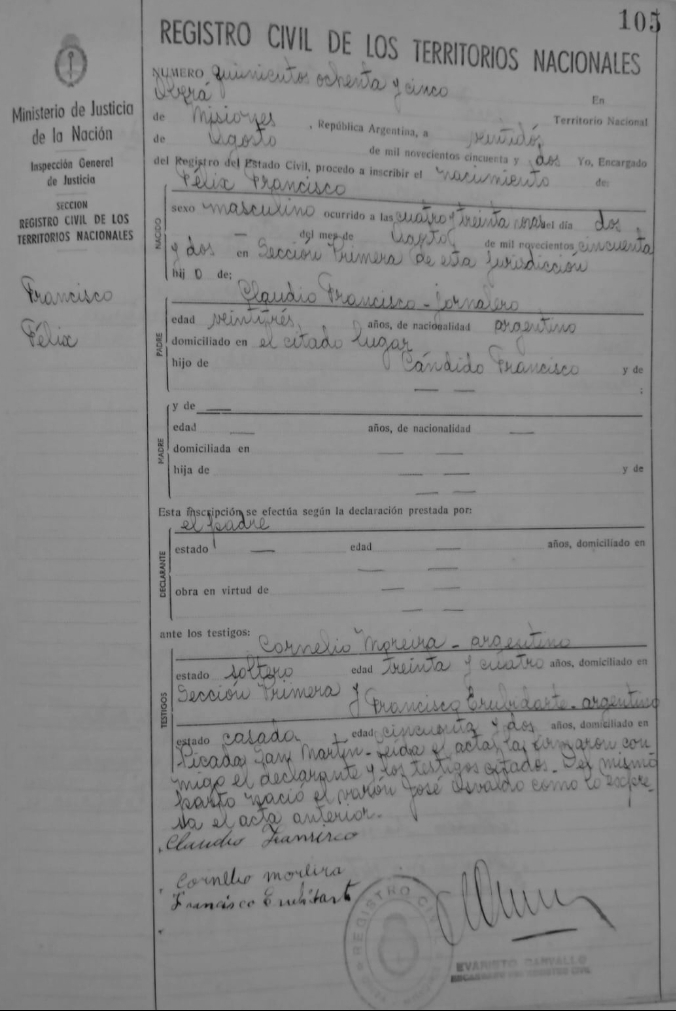 105
REGISTRO CIVIL DE LOS TERRITORIOS NACIONALES
Ministerio de Justicia
de la Nación
Inspección General
de Justicia
SECCION
REGISTRO CIVIL DE LOS
TERRITORIOS NACIONALES
Francisco
Félix
NUMERO quinientos ochenta y cinco En
Oberá Territorio Nacional
de Misiones, República Argentina, a veintidós
de Agosto de mil novecientos cincuenta y dos Yo, Encargado
del Registro del Estado Civil, procedo a inscribir el nacimiento de:
Félix Francisco
NACIDO
sexo masculino ocurrido a las cuatro y treinta horas del día dos
— del mes de Agosto de mil novecientos cincuenta
y dos en Sección Primera de esta jurisdicción
hij o de:
Claudio Francisco - jornalero
PADRE
edad veintitrés años, de nacionalidad argentino
domiciliado en el citado lugar
hijo de Cándido Francisco y de
— — ;
MADRE
y de —
edad — años, de nacionalidad —
domiciliada en — —
hija de — — y de
— —
Esta inscripción se efectúa según la declaración prestada por:
el padre
DECLARANTE
estado — edad — años, domiciliado en
— —
obra en virtud de — —
— —
ante los testigos:
Cornelio Moreira - argentino
TESTIGOS
estado soltero edad treinta y cuatro años, domiciliado en
Sección Primera y Francisco - argentino
estado casada edad cincuenta y dos años, domiciliado en
Picada San Martín - Leída el acta, la firmaron con
migo el declarante y los testigos citados - Del mismo
parto nació el varón José Osvaldo como lo expre-
sa el acta anterior.-
Claudio Fransisco
Cornelio moreira
Francisco
REGISTRO CIVIL
EVARISTO CARVALLO
ENCARGADO DEL REGISTRO CIVIL